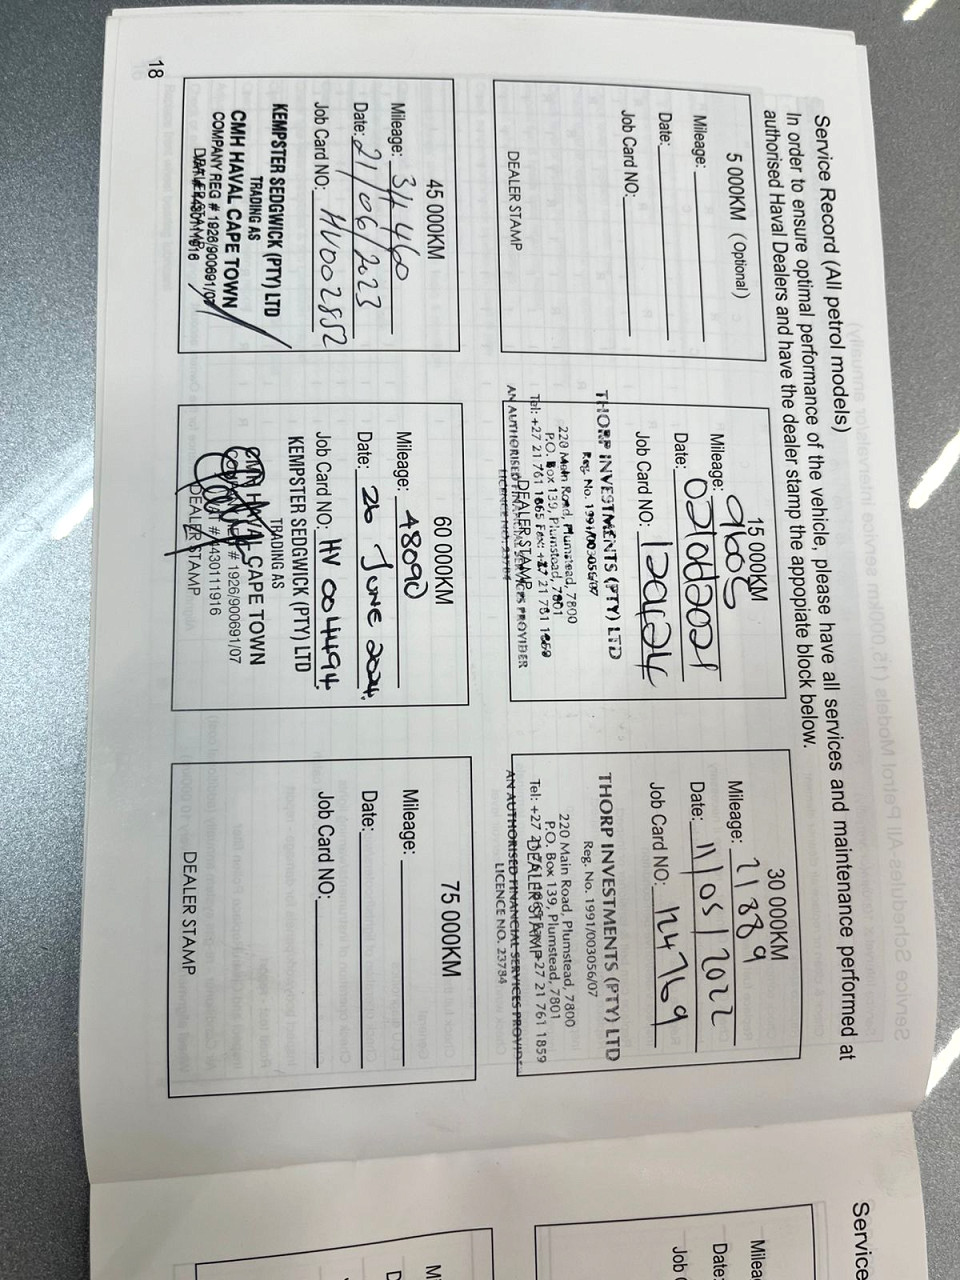 Service Record (All petrol models)
In order to ensure optimal performance of the vehicle, please have all services and maintenance performed at
authorised Haval Dealers and have the dealer stamp the appopiate block below.
5 000KM (Optional)
Mileage:
Date:
Job Card NO:
DEALER STAMP
15 000KM
Mileage:
Date:
Job Card NO:
THORP INVESTMENTS (PTY) LTD
Reg. No. 1991/003056/07
220 Main Road, Plumstead, 7800
P.O. Box 139, Plumstead, 7801
Tel: +27 21 761 1865 Fax: +27 21 761 1859
DEALER STAMP
AN AUTHORISED FINANCIAL SERVICES PROVIDER
LICENCE NO. 23784
30 000KM
Mileage: 21889
Date: 11/05/2022
Job Card NO: 124769
THORP INVESTMENTS (PTY) LTD
Reg. No. 1991/003056/07
220 Main Road, Plumstead, 7800
P.O. Box 139, Plumstead, 7801
Tel: +27 21 +27 21 761 1859
DEALER STAMP
AN AUTHORISED FINANCIAL SERVICES
LICENCE NO. 23784
45 000KM
Mileage: 34460
Date: 21/06/2023
Job Card NO: HV002852
KEMPSTER SEDGWICK (PTY) LTD
TRADING AS
CMH HAVAL CAPE TOWN
COMPANY REG # 1926/900691/07
DEALER STAMP
60 000KM
Mileage: 48090
Date: 26 JUNE 2024.
Job Card NO: HV 004494.
KEMPSTER SEDGWICK (PTY) LTD
TRADING AS
CMH HAVAL CAPE TOWN
# 1926/900691/07
#4430111916
DEALER STAMP
75 000KM
Mileage:
Date:
Job Card NO:
DEALER STAMP
18
Service
Date:
Job